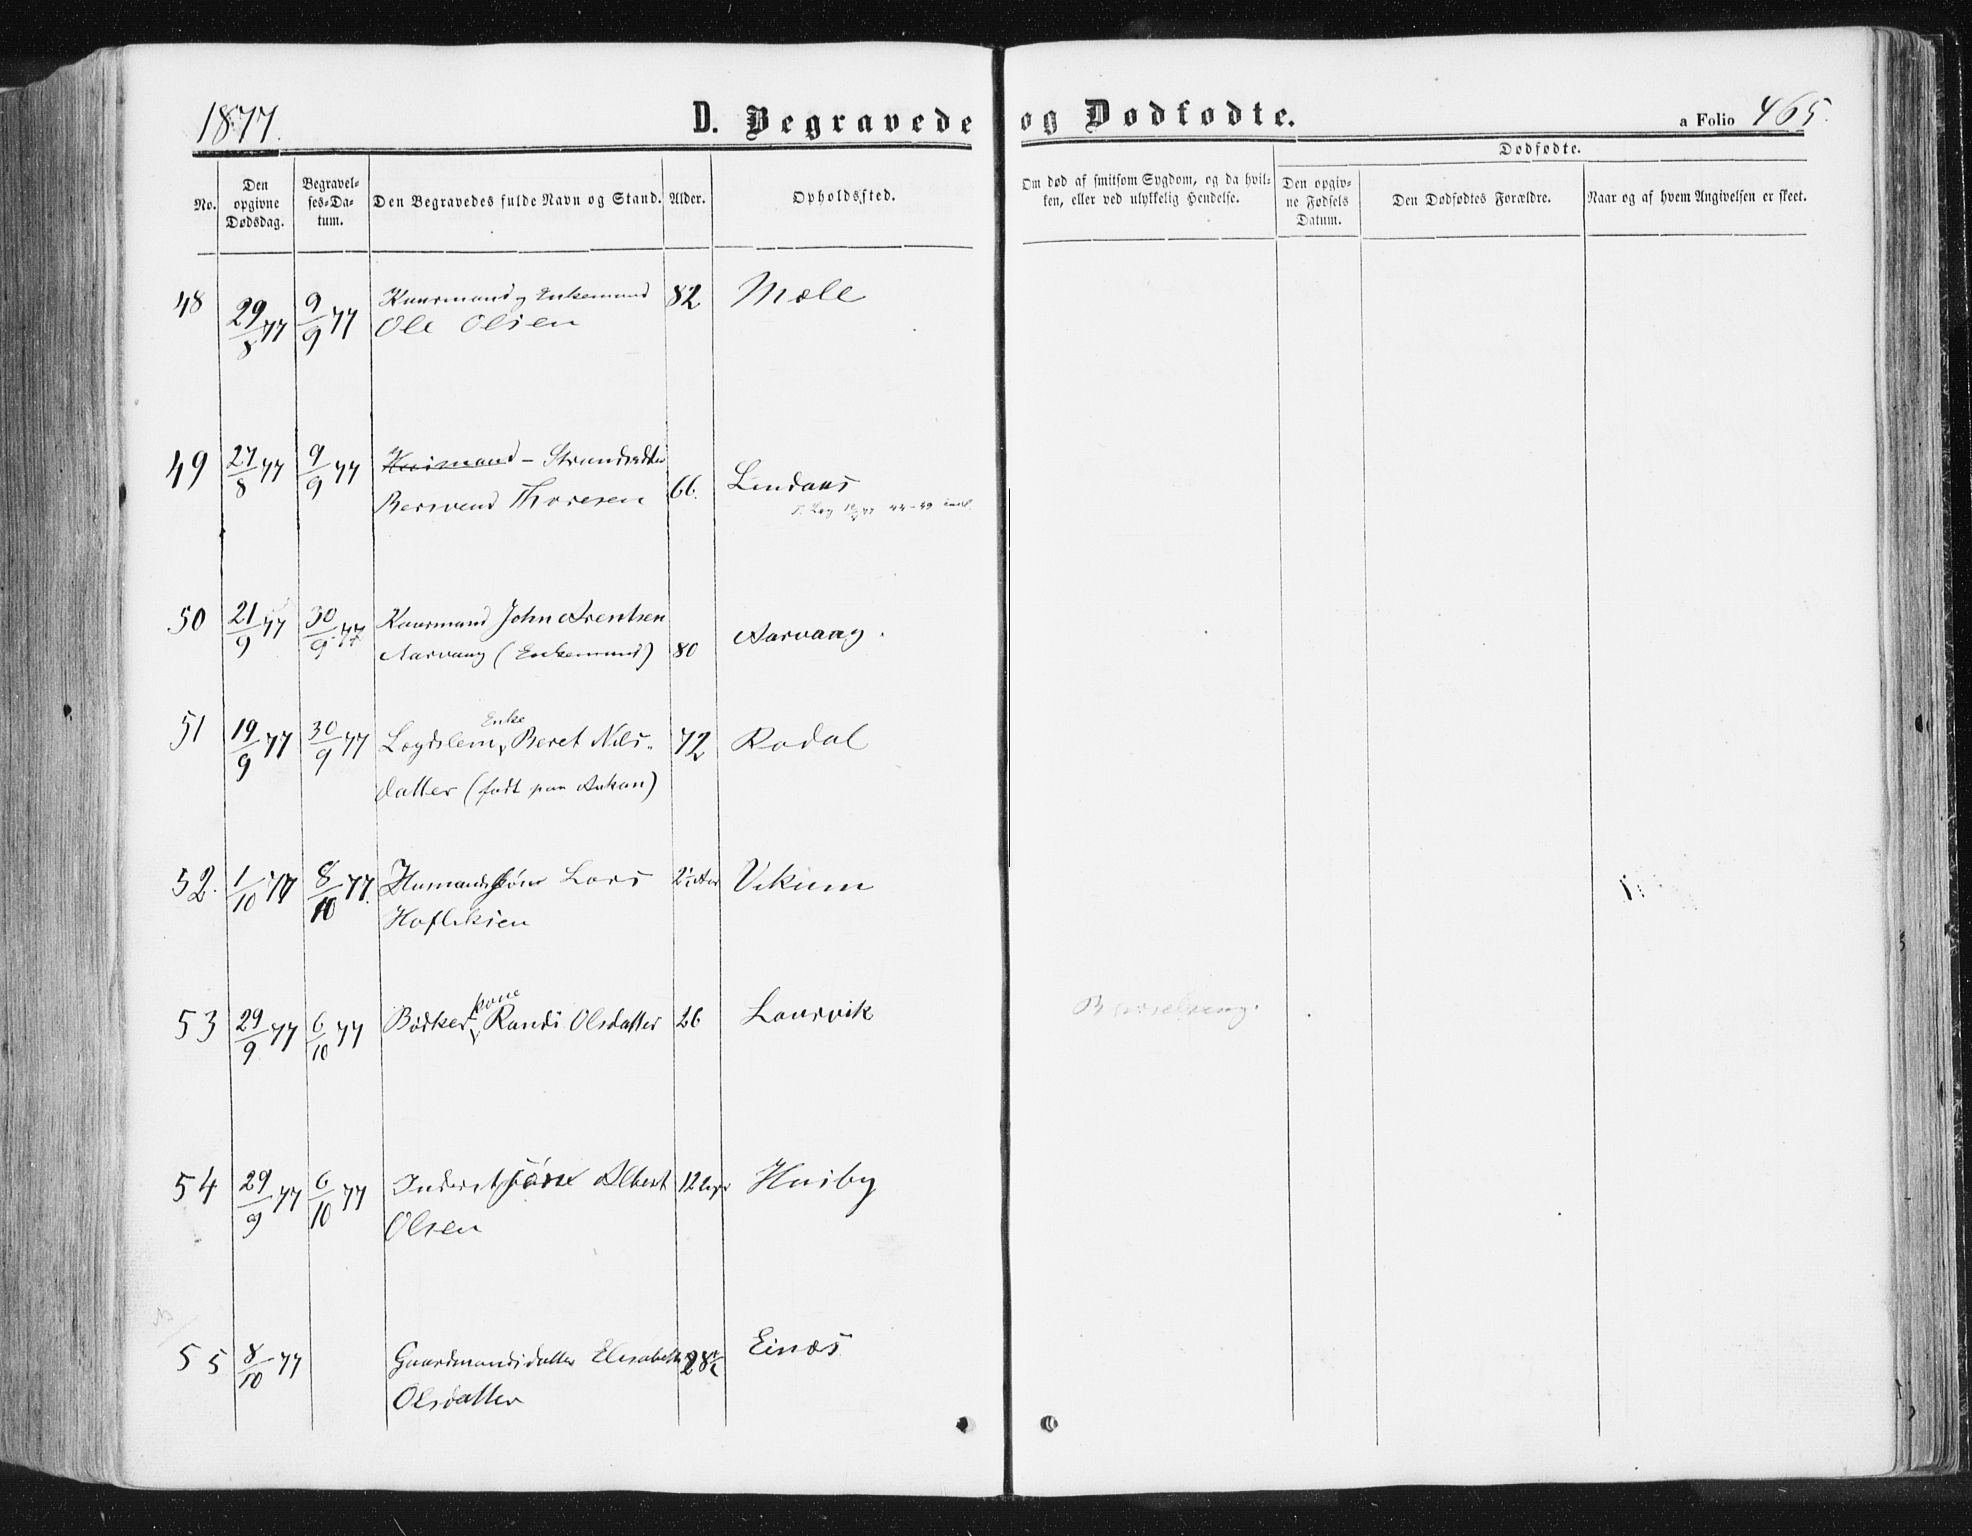 1877.
D. Begravede og Dødfødte.
a Folio 465.
No.
Den opgivne Dødsdag.
Begravelses-Datum.
Den Begravedes fulde Navn og Stand.
Alder.
Opholdssted.
Om død af smitsom Sygdom, og da hvilken, eller ved ulykkelig Hendelse.
Dødfødte.
Den opgivne Fødsels Datum.
Den Dødfødtes Forældre.
Naar og af hvem Angivelsen er skeet.
48 29/8 77 9/9 77 Kaarmand og Enkemand 82 Mæle
Ole Olsen
49 27/8 77 9/9 77 Husmand - 66. Lundaas
Bersvend Thoresen
50 21/9 77 30/9 77 Kaarmand John Arentsen 80 Aarvaag.
Aarvaag (Enkemand)
51 19/9 77 30/9 77 Logdslem, Enke Beret Nils- 72 Rodal
datter (født paa)
52. 1/10 77 8/10 77. Husmandssøn Lars Vikum
Hofleksen
53 29/9 77 6/10 77 Bødkerkone Randi Olsdatter 26 Laurvik Barselseng.
54 29/9 77 6/10 77 Inderstsøn Albert 12 Husby
Olsen
55 8/10 77 Gaardmandsdatter Elisabeth 28 Einæs
Olsdatter